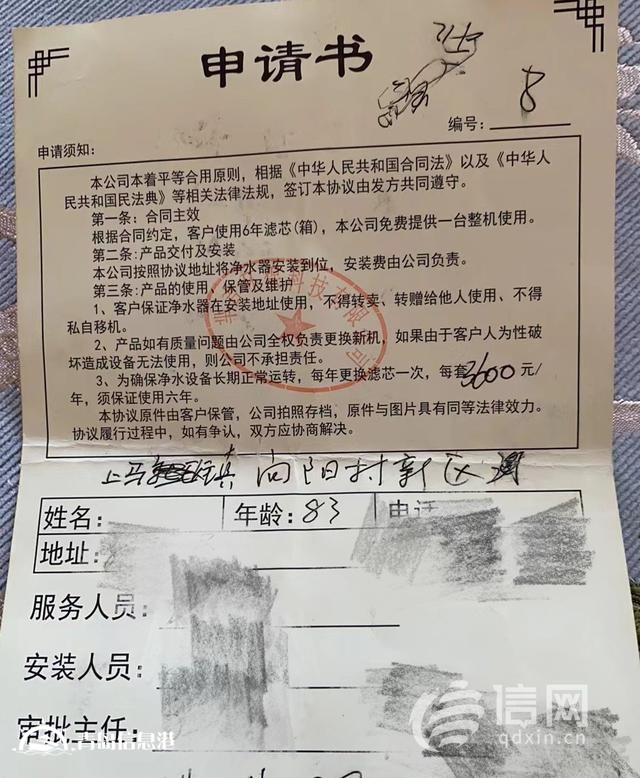 申请书
编号: 8
申请须知:
本公司本着平等合用原则，相据《中华人民共和国合同法》以及《中华人
民共和国民法典》等相关法律法规，签订本协议由发方共同遵守。
第一条: 合同主效
根据合同约定，客户使用6年滤芯(箱)，本公司免费提供一台整机使用。
第二条:产品交付及安装
本公司按照协议地址将净水器安装到位，安装费由公司负责。
第三条:产品的使用，保管及维护
1、客户保证净水器在安装地址使用，不得转卖、转赠给他人使用、不得
私自移机。
2、产品如有质量问题由公司全权负责更换新机，如果由于客户人为性破
坏造成设备无法使用，则公司不承担责任。
3、为确保净水设备长期正常运转，每年更换滤芯一次，每套3600元/
年，须保证使用六年。
本协议原件由客户保管，公司拍照存档，原件与图片具有同等法律效力。
协议履行过程中，如有争认，双方应协商解决。
科技有限公司
上马 向阳村新区
姓名: 年龄:83 电话
地址:
服务人员:
安装人员:
审批主任:
青岛信息港
信网
qdxin.cn